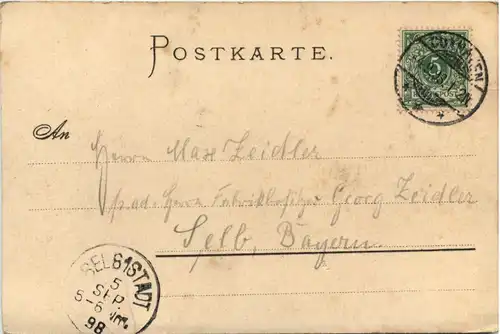 POSTKARTE.
5
An
Herrn Max Zeidler
p. ad. Herrn Fabrikbesitzer Georg Zeidler
Selb, Bayern.
SELB 1 STADT
5
SEP.
5-6 Nm.
98